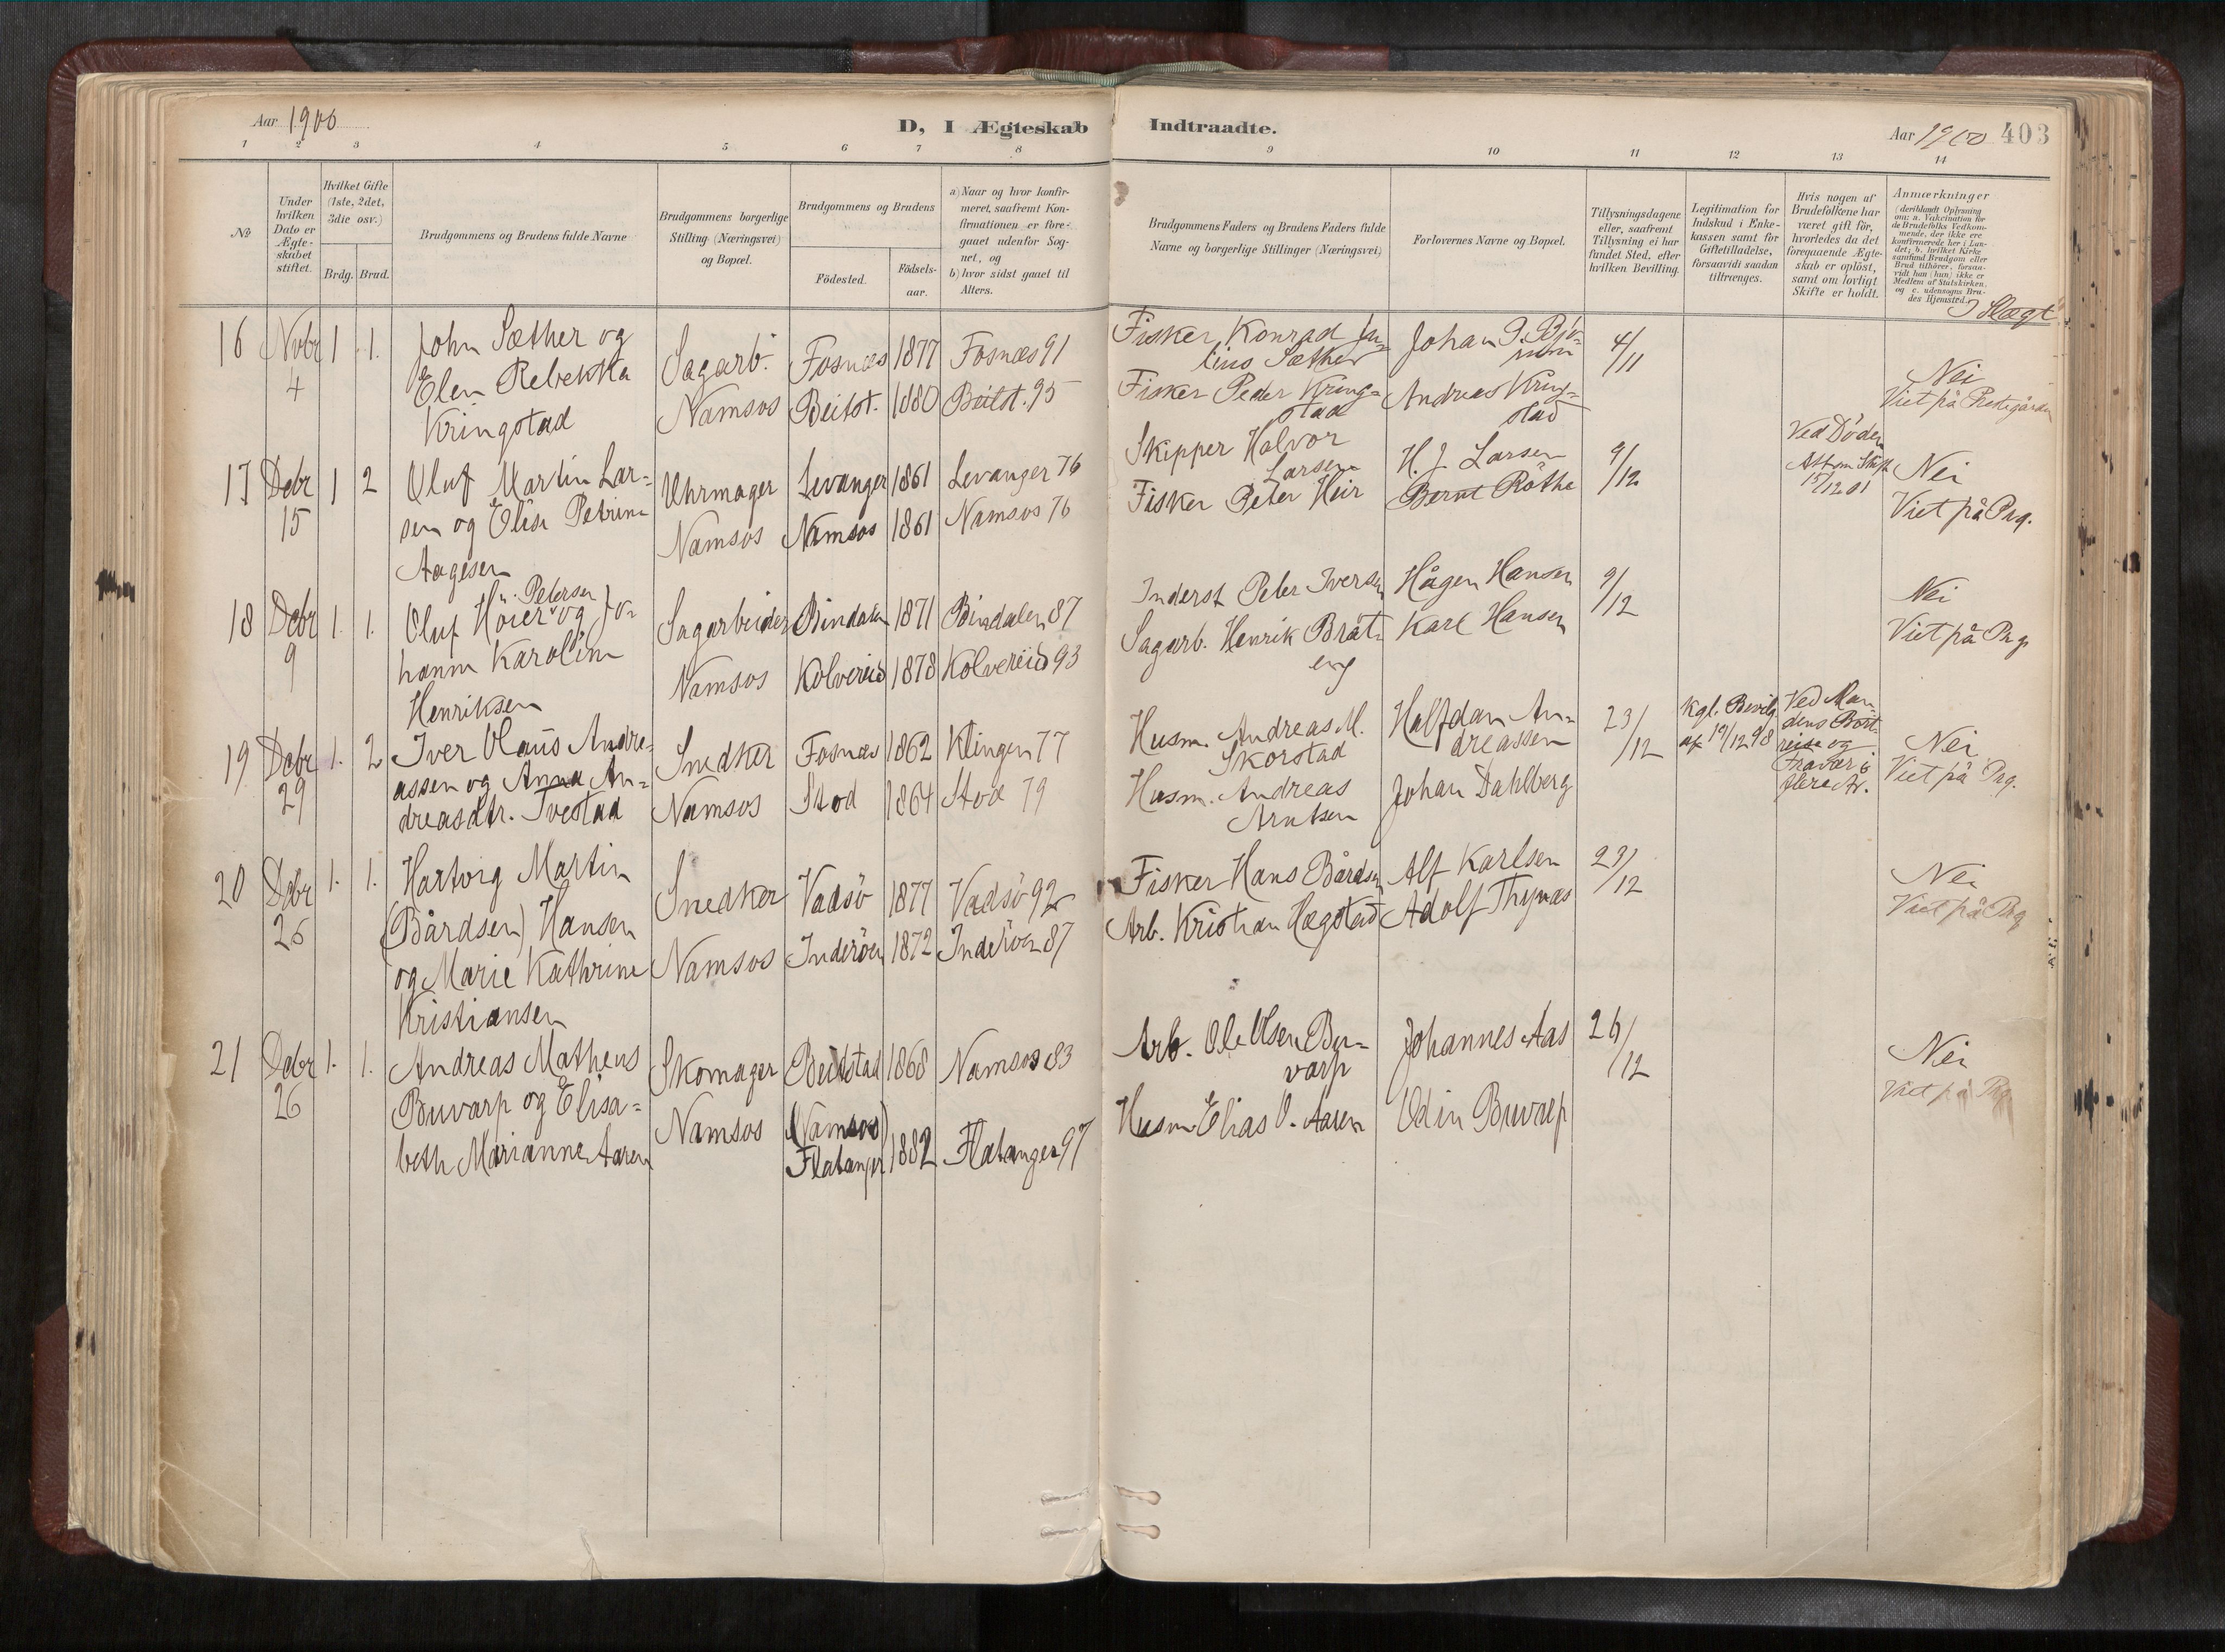 Aar 1900
D, I Ægteskab
1 2 3 4 5 6 7 8
№
Under hvilken Dato er Ægteskabet stiftet.
Hvilket Gifte (1ste, 2det, 3die osv.)
Brdg. Brud.
Brudgommens og Brudens fulde Navne
Brudgommens borgerlige Stilling (Næringsvei) og Bopæl.
Brudgommens og Brudens
Födested.
Födsels-aar.
a) Naar og hvor konfirmeret, saafremt Konfirmationen er foregaaet udenfor Sognet, og
b) hvor sidst gaaet til Alters.
Indtraadte.
Aar 1900 403
9 10 11 12 13 14
Brudgommens Faders og Brudens Faders fulde Navne og borgerlige Stillinger (Næringsvei)
Forlovernes Navne og Bopæl.
Tillysningsdagene eller, saafremt Tillysning ei har fundet Sted, efter hvilken Bevilling.
Legitimation for Indskud i Enkekassen samt for Giftetilladelse, forsaavidt saadan tiltrænges.
Hvis nogen af Brudefolkene har været gift før, hvorledes da det foregaaende Ægteskab er oplöst, samt om lovligt Skifte er holdt.
Anmærkninger
(deriblandt Oplysning om: a. Vakcination for de Brudefolks Vedkommende, der ikke ere konfirmerede her i Landet; b. hvilket Kirkesamfund Brudgom eller Brud tilhörer, forsaavidt han (hun) ikke er Medlem af Statskirken, og c. udensogns Brudes Hjemsted.)
I Slægt
16 Nvbr 4 1 1.
John Sæther og
Elen Rebekka
Kringstad
Sagarb.
Namsos
Fosnæs 1877 Fosnæs 91
Beitst. 1880 Beitst. 95
Fisker Konrad Ju-
lius Sæther
Fisker Peder Kring=
stad
Johan P. Björ
Andreas Kring=
stad
4/11
Nei
Viet på Prestegården
17 Debr 15 1 2
Oluf Martin Lar=
sen og Elise Petrine
Aagesen
Uhrmager
Namsos
Levanger 1861 Levanger 76
Namsos 1861 Namsos 76
Skipper Halvor
Larsen
Fisker Peter Heir
H. J. Larsen
Bernt Röthe
9/12
Ved Döden
Att om Skift
15/12 01
Nei
Viet på Prg.
18 Debr 9 1. 1.
Petersen
Oluf Höier og Jo-
hanne Karoline
Henriksen
Sagarbeider
Namsos
Bindalen 1871 Bindalen 87
Kolvereid 1878 Kolvereid 93
Inderst Peter Iversen
Sagarb. Henrik Bråt-
eng
Hågen Hansen
Karl Hansen
9/12
Nei
Viet på Prg
19 Debr 29 1. 2
Iver Olaus Andre=
assen og Anna An=
dreasdtr. Tvestad
Snedker
Namsos
Fosnæs 1862 Klingen 77
Stod 1864 Stod 79
Husm. Andreas M.
Skorstad
Husm. Andreas
Arntsen
Halfdan An=
dreassen
Johan Dahlberg
23/12
Kgl. Bevilg
af 19/12 98
Ved Man-
dens Bort-
reise og
Fravær i
flere År.
Nei
Viet på Prg.
20 Debr 26 1. 1.
Hartvig Martin
(Bårdsen) Hansen
og Marie Kathrine
Kristiansen
Snedker
Namsos
Vadsö 1877 Vadsö 92
Inderöen 1872 Inderöen 87
Fisker Hans Bårdsen
Arb. Kristian Hægstad
Alf Karlsen
Adolf Thynæs
23/12
Nei
Viet på Prg
21 Debr 26 1. 1.
Andreas Matheus
Buvarp og Elisa=
beth Marianne Aaren
Skomager
Namsos
Beitstad 1868 Namsos 83
(Namsos)
Flatanger 1882 Flatanger 97
Arb. Ole Olsen Bu-
varp
Husm. Elias O. Aaren
Johannes Aas
Odin Buvarp
26/12
Nei
Viet på Prg